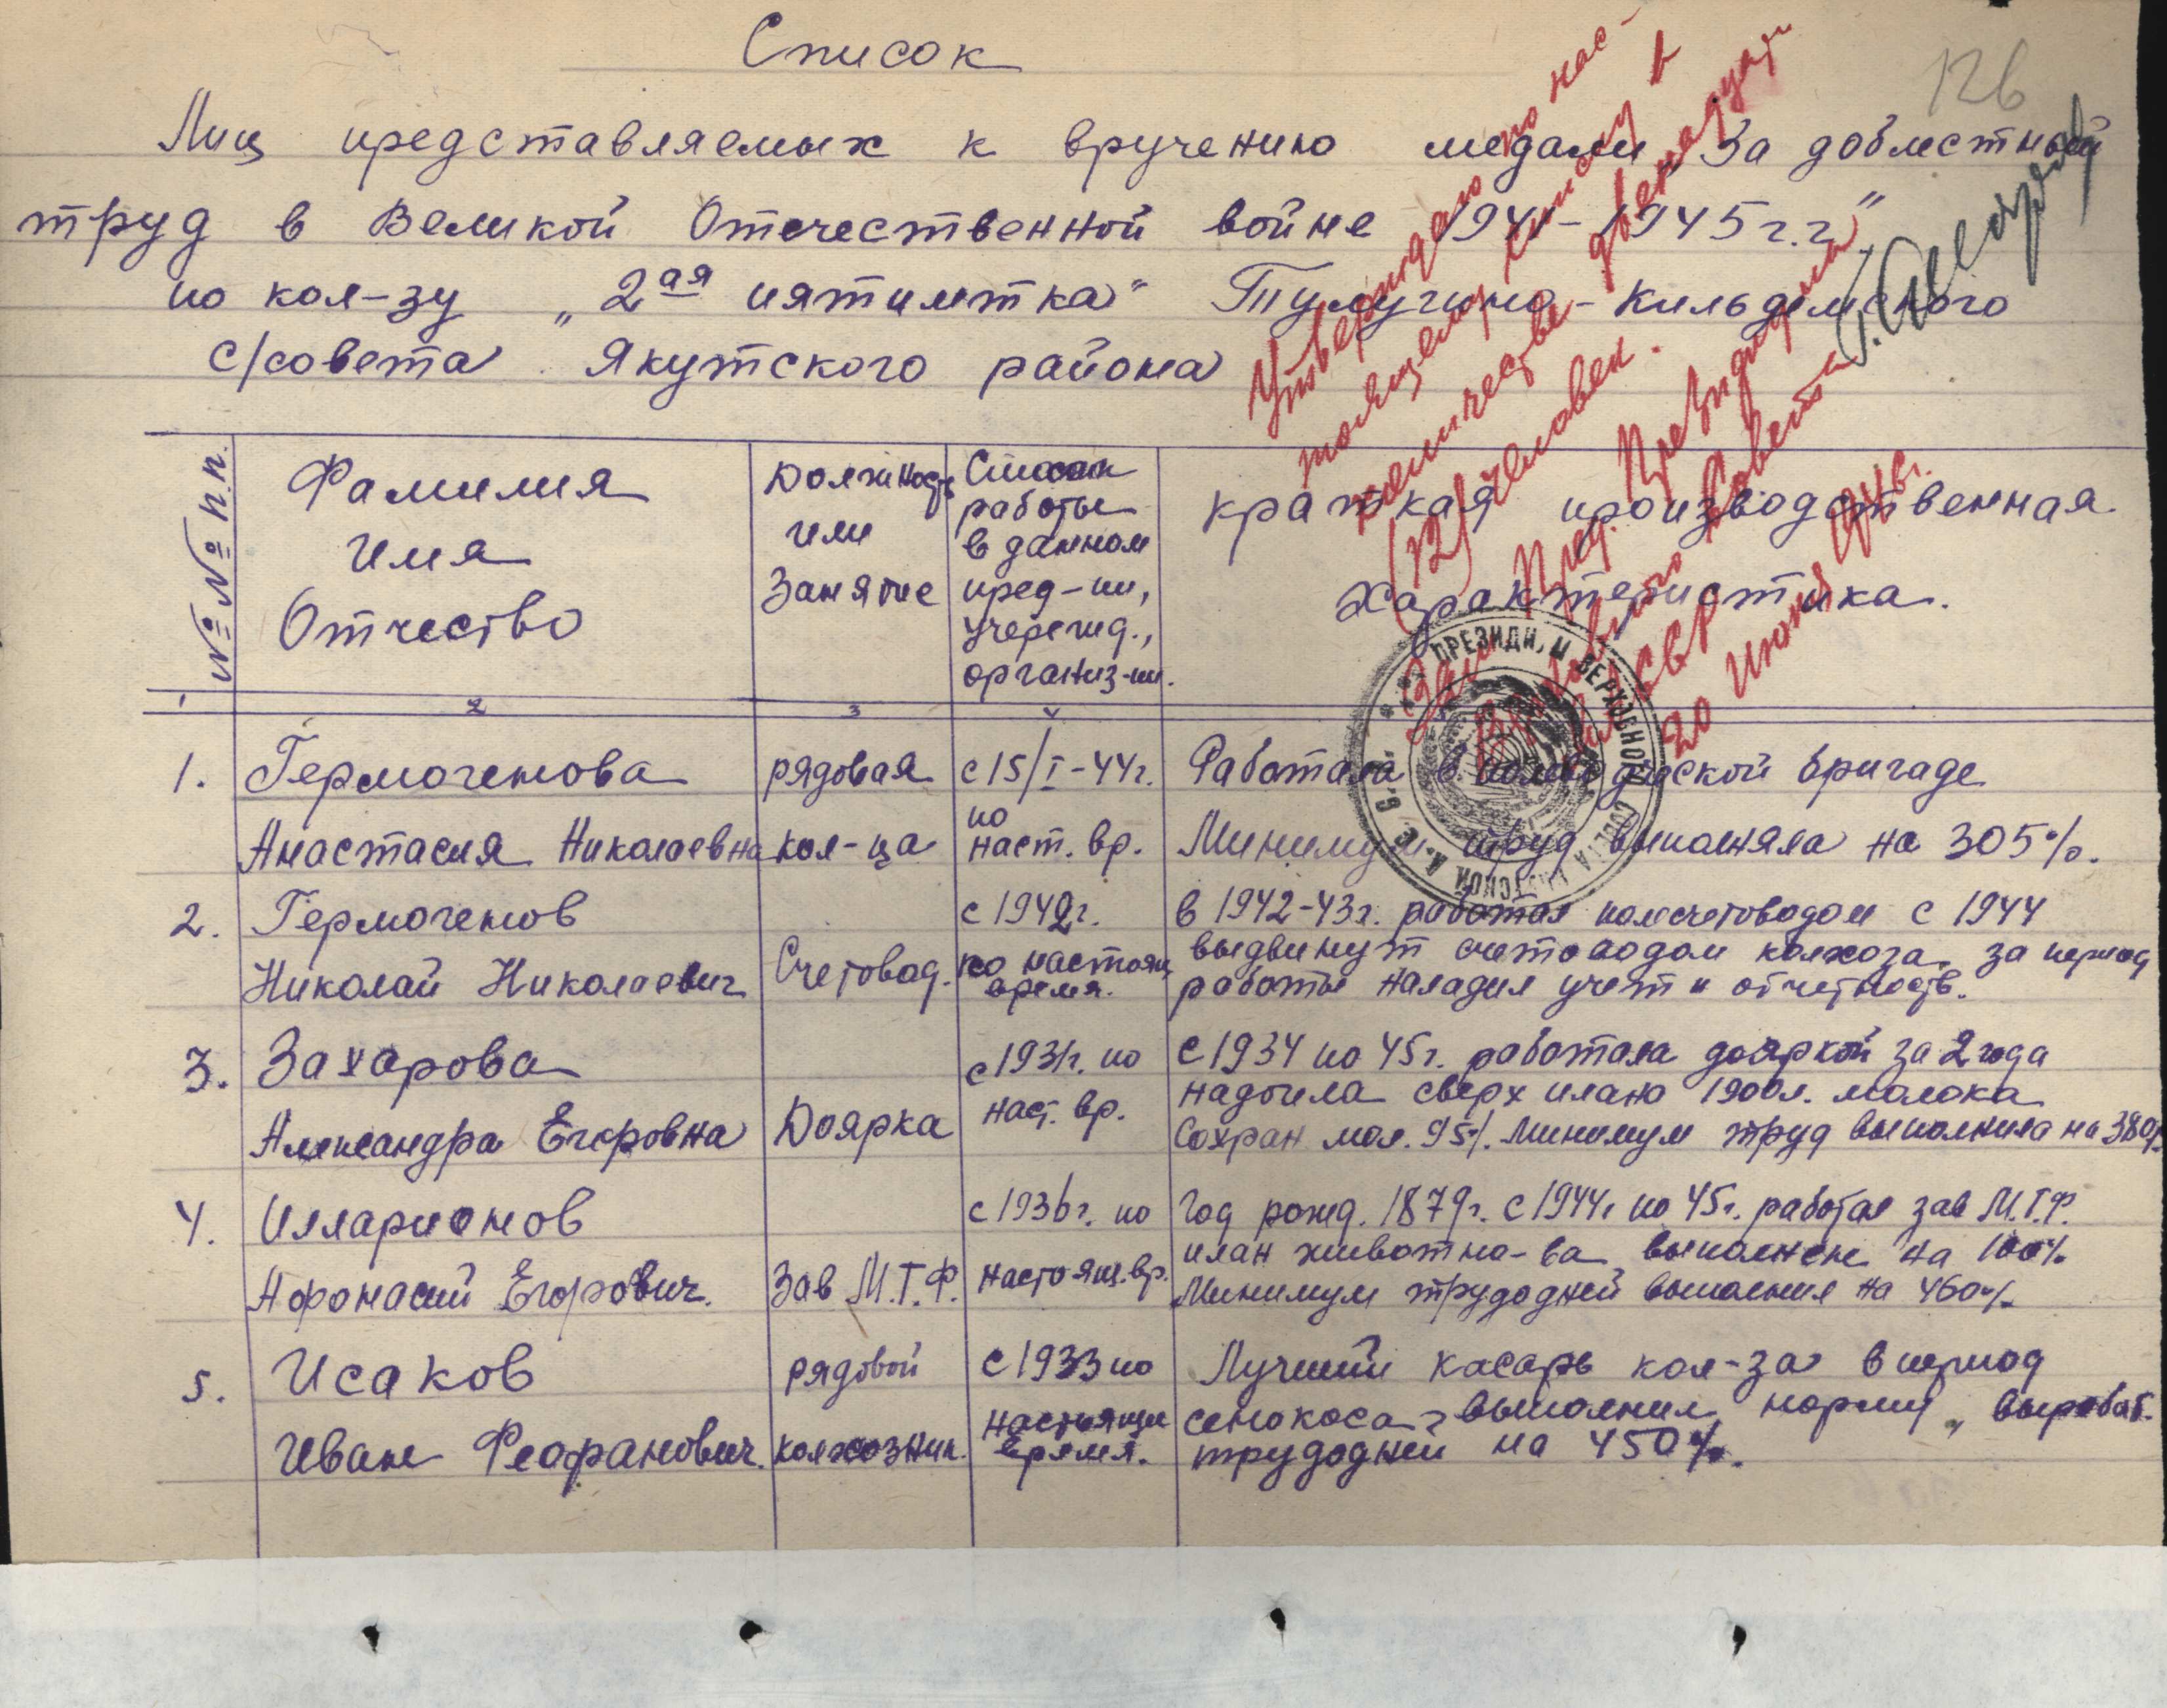 Список
126
Лиц представляемых к вручению медали „За доблестный
труд в Великой Отечественной войне 1941-1945г.г."
по кол-зу „2ая пятилетка" Тулугино-Кильдемского
с/совета Якутского района
Утверждаю по нас-
тоящему списку в
количестве двенадцати
(12) человек.
Зам. Пред. Президиума
Верховного Совета
ЯАССР
20 июня 1946г.
№ № п.п.
Фамилия
Имя
Отчество
Должность
или
Занятие
Стаж
работы
в данном
пред-ии,
учрежд.,
организ-ии.
краткая производственная
Характеристика.
1 2 3 4
ПРЕЗИДИУМ ВЕРХОВНОГО СОВЕТА ЯКУТСКОЙ А.С.С.Р.
1. Гермогенова рядовая с 15/I-44г. Работала в полеводческой бригаде
Анастасия Николаевна кол-ца по наст. вр. Минимум труд выполняла на 305%.
2. Гермогенов с 1942г. в 1942-43г. работал помсчетоводом с 1944
Николай Николаевич Счетовод. по настоящ время. выдвинут счетоводом колхоза, за период
работы наладил учет и отчетность.
3. Захарова с 1931г. по с 1934 по 45г. работала дояркой за 2 года
надоила сверх плана 1900л. молока
Александра Егоровна Доярка наст. вр. Сохран мол. 95%. Минимум труд выполнила на 380%
4. Илларионов с 1936г. по Год рожд. 1879г. с 1944г по 45г. работал зав М.Т.Ф.
план животно-ва выполнен на 100%
Афонасий Егорович. Зав М.Т.Ф. настоящ. вр. Минимум трудодней выполнил на 460%
5. Исаков рядовой с 1933 по Лучший касарь кол-за в период
сенокоса выполнил норму, выработ.
Иван Феофанович. колхозник. настоящее время. трудодней на 450%.